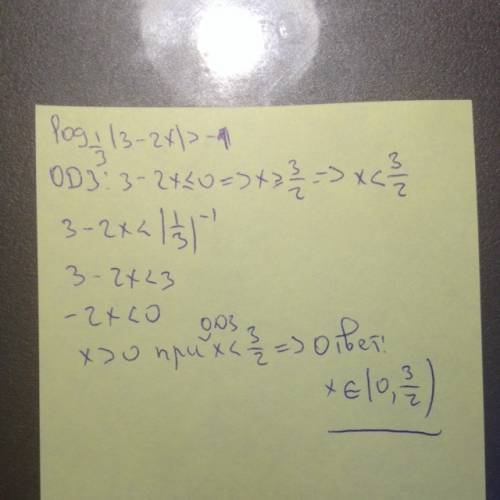 log_{1/3}(3-2x)>-1
ОДЗ: 3-2x≤0=>x≥3/2=>x<3/2
3-2x<(1/3)^{-1}
3-2x<3
-2x<0
x>0 при ОДЗ x<3/2=>Ответ:
x∈(0,3/2)